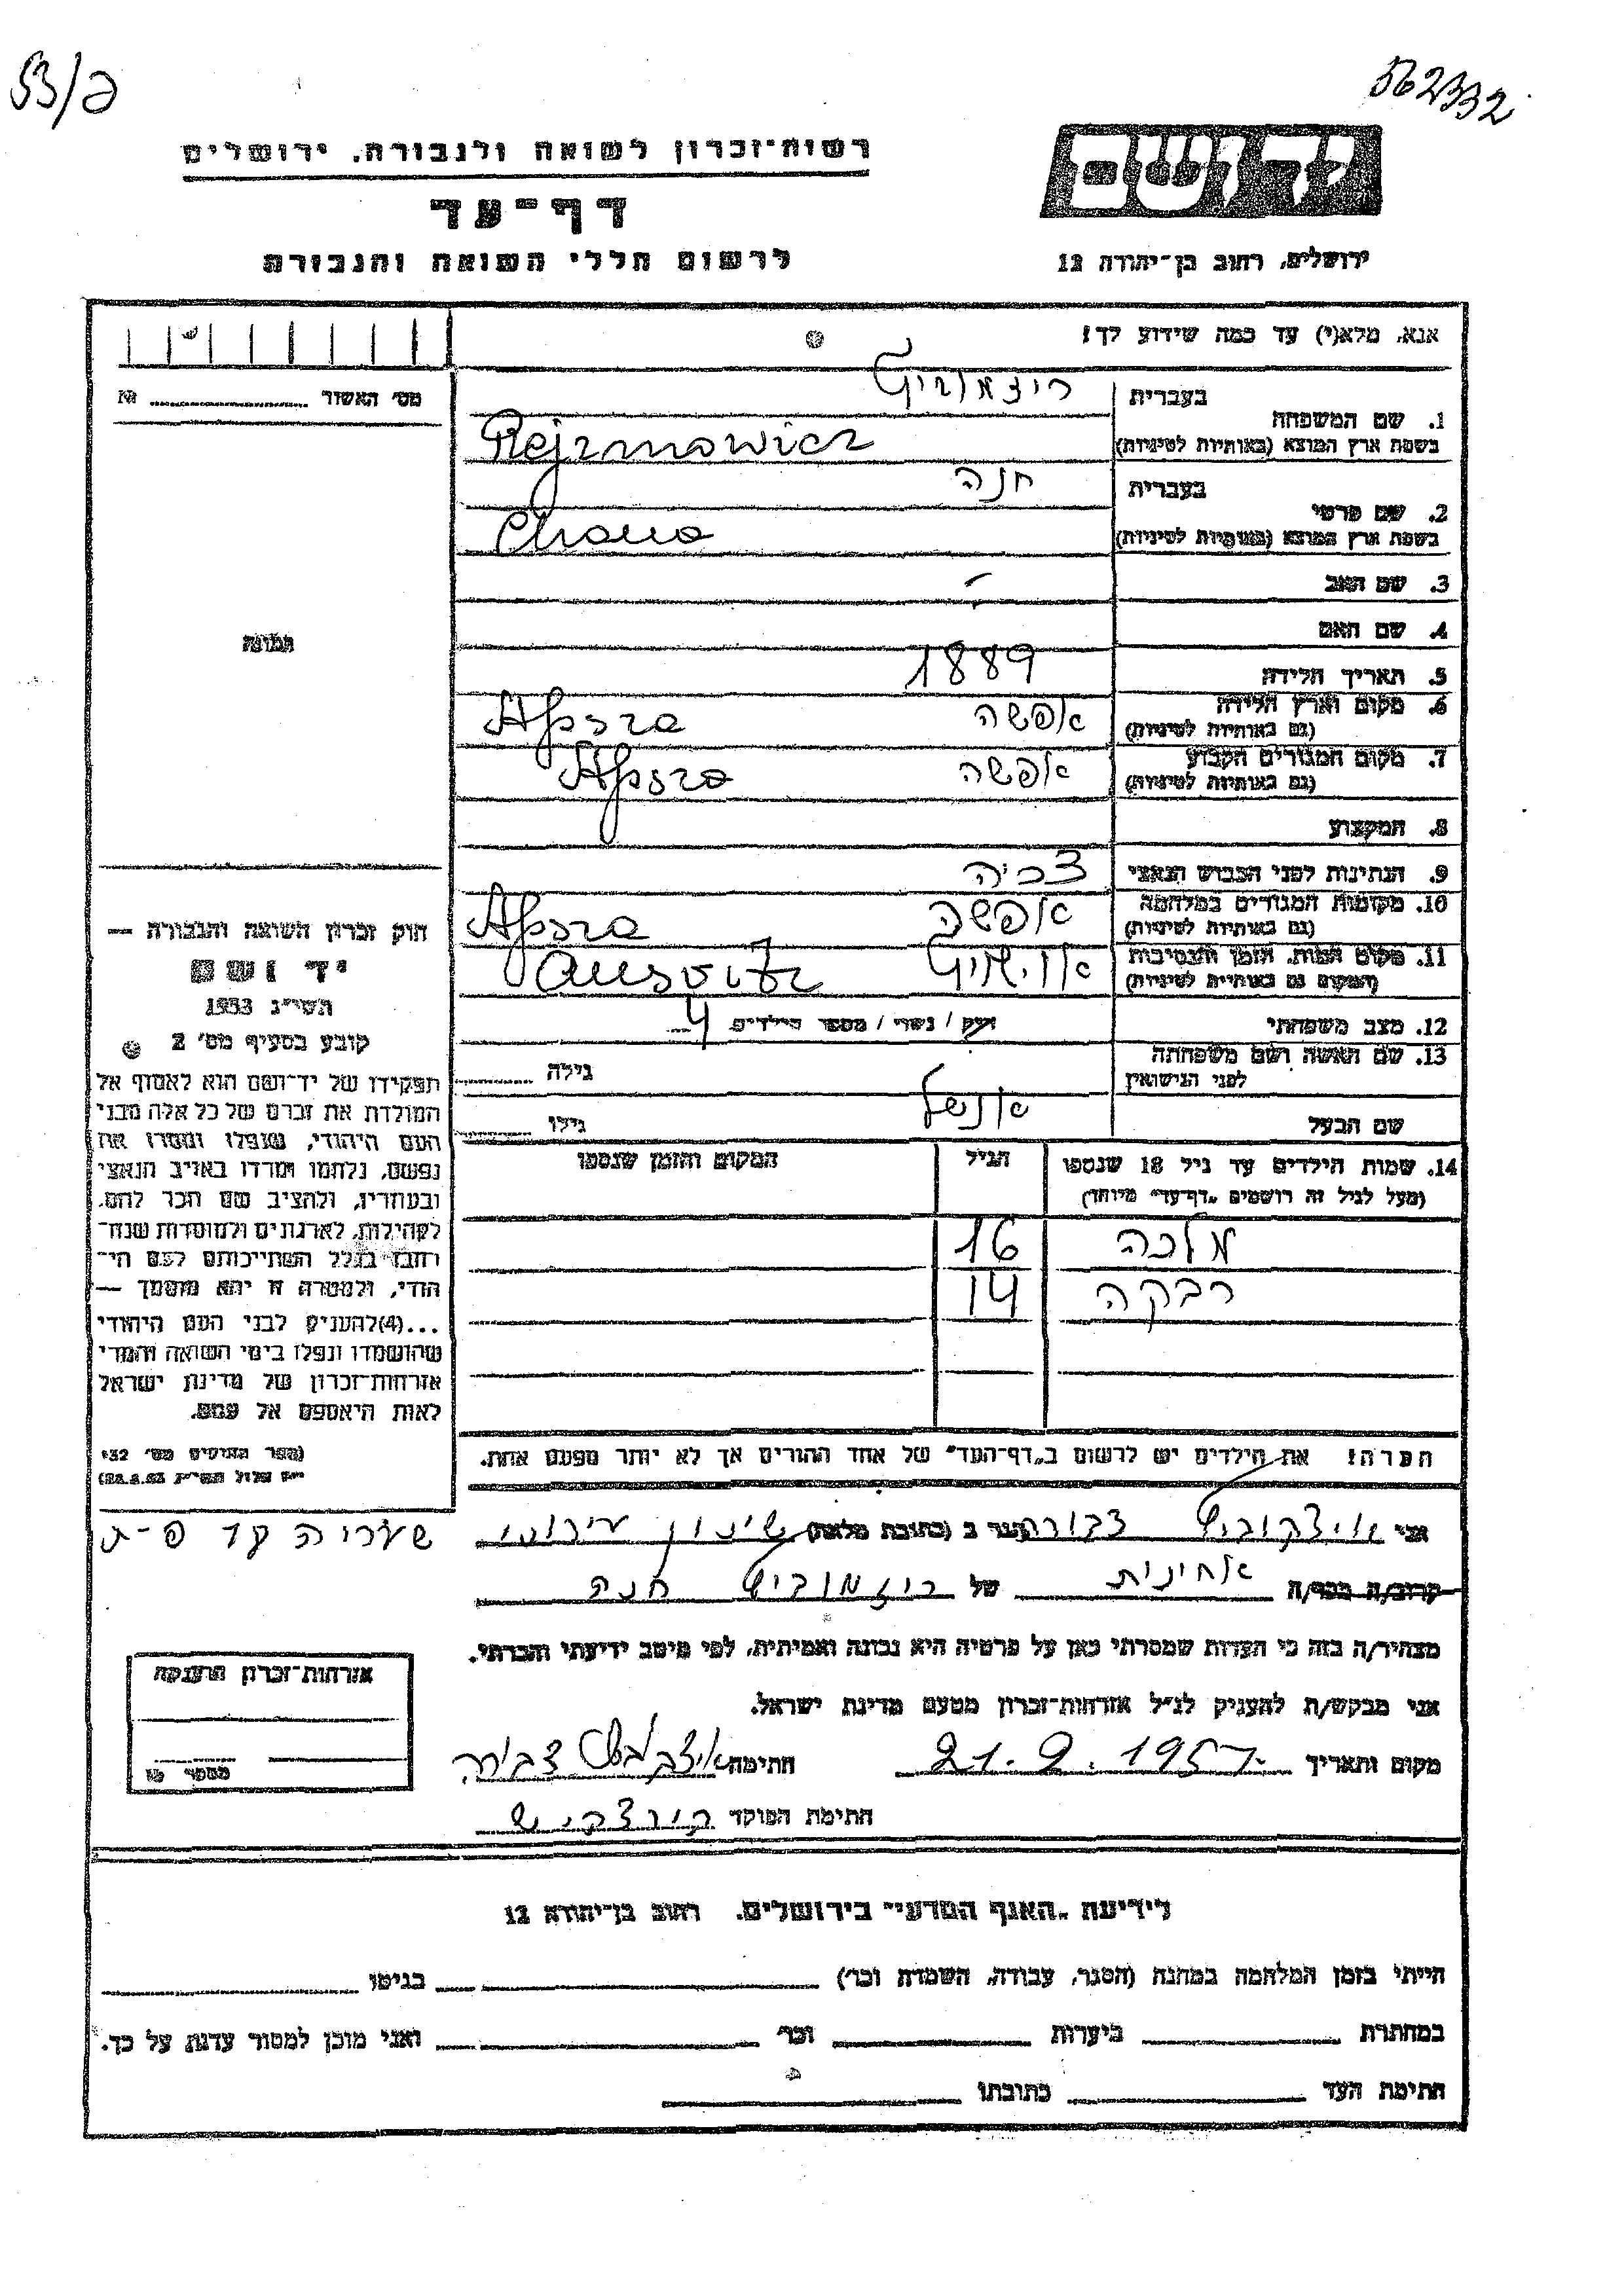 53/פ
562332
יד ושם
ירושלים, רחוב בן-יהודה 12
רשות-זכרון לשואה ולגבורה, ירושלים
דף-עד
לרשום חללי השואה והגבורה
אנא, מלא(י) עד כמה שידוע לך!
מס׳ האשור № 
1. שם המשפחה
בעברית
בשפת ארץ המוצא (באותיות לטיניות)
Rejzmowicz
2. שם פרטי
בעברית חנה
בשפת ארץ המוצא (באותיות לטיניות) Chana
3. שם האב -
4. שם האם
5. תאריך הלידה 1889
6. מקום וארץ הלידה אפשה Apsza
(גם באותיות לטיניות)
7. מקום המגורים הקבוע אפשה Apsza
(גם באותיות לטיניות)
8. המקצוע
9. הנתינות לפני הכבוש הנאצי צכיה
10. מקומות המגורים במלחמה אפשה Apsza
(גם באותיות לטיניות)
11. מקום המות, הזמן והנסיבות Ausvitz
(המקום גם באותיות לטיניות)
12. מצב משפחתי רוק / נשוי / מספר הילדים 4
13. שם האשה ושם משפחתה
לפני הנישואין גילה
שם הבעל אנשל גילו
14. שמות הילדים עד גיל 18 שנספו הגיל המקום והזמן שנספו
(מעל לגיל זה רושמים „דף-עד" מיוחד)
מלכה 16
רבקה 14
תמונה
חוק זכרון השואה והגבורה —
יד ושם
תשי״ג 1953
קובע בסעיף מס׳ 2
תפקידו של יד-ושם הוא לאסוף אל
המולדת את זכרם של כל אלה מבני
העם היהודי, שנפלו ומסרו את
נפשם, נלחמו ומרדו באויב הנאצי
ובעוזריו, ולהציב שם וזכר להם,
לקהילות, לארגונים ולמוסדות שנח-
רבו בגלל השתייכותם לעם הי-
הודי, ולמטרה זו יהא מוסמך —
...(4) להעניק לבני העם היהודי
שהושמדו ונפלו בימי השואה והמרי
אזרחות-זכרון של מדינת ישראל
לאות היאספם אל עמם.
(ספר החוקים מס׳ 132
הערה! את הילדים יש לרשום ב„דף-העד" של אחד ההורים אך לא יותר מפעם אחת.
אני איצקוביץ צפורה הגר ב (כתובת מלאה) שיכון עירוני
שעריה על פ-ת
קרוב/ה מכר/ה אחינית של ריזמוביץ חנה
מצהיר/ה בזה כי העדות שמסרתי כאן על פרטיה היא נכונה ואמיתית, לפי מיטב ידיעתי והכרתי.
אני מבקש/ת להעניק לנ״ל אזרחות-זכרון מטעם מדינת ישראל.
מקום ותאריך 21.2.1957 חתימה איצקוביץ צפורה
חתימת הפוקד
אזרחות-זכרון הוענקה
מספר №
לידיעת „האגף המדעי" בירושלים, רחוב בן-יהודה 12
הייתי בזמן המלחמה במחנה (הסגר, עבודה, השמדה וכו׳) בגיטו
במחתרת ביערות וכו׳ ואני מוכן למסור עדות על כך.
חתימת העד כתובתו